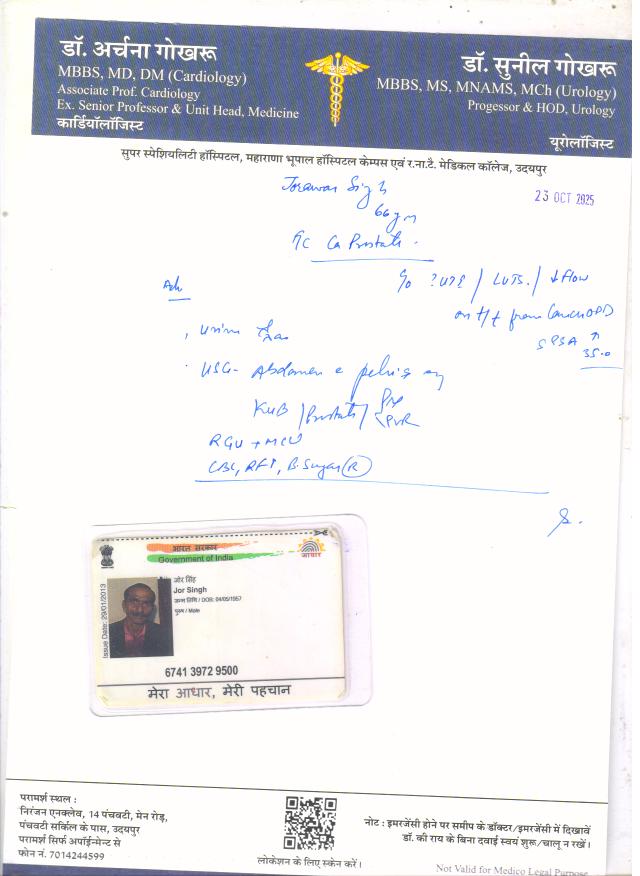 डॉ. अर्चना गोखरू
MBBS, MD, DM (Cardiology)
Associate Prof. Cardiology
Ex. Senior Professor & Unit Head, Medicine
कार्डियॉलॉजिस्ट
डॉ. सुनील गोखरू
MBBS, MS, MNAMS, MCh (Urology)
Progessor & HOD, Urology
यूरोलॉजिस्ट
सुपर स्पेशियलिटी हॉस्पिटल, महाराणा भूपाल हॉस्पिटल केम्पस एवं र.ना.टै. मेडिकल कॉलेज, उदयपुर
23 OCT 2025
Jorawar Singh
66 ym
Ca Prostate
c/o ? UTI / LUTS. / ↓ flow
on t/t from Cancer OPD
S PSA ↑
35.0
Adv
USG- Abdomen e pelvis
KUB / Prostate / PVR
RGU + MCU
CBC, RFT, B. Sugar (R)
भारत सरकार
Government of India
आधार
Issue Date: 29/01/2013
जोर सिंह
Jor Singh
जन्म तिथि / DOB: 04/05/1957
पुरुष / Male
6741 3972 9500
मेरा आधार, मेरी पहचान
परामर्श स्थल :
निरंजन एनक्लेव, 14 पंचवटी, मेन रोड़,
पंचवटी सर्किल के पास, उदयपुर
परामर्श सिर्फ अपॉईन्मेन्ट से
फोन नं. 7014244599
लोकेशन के लिए स्केन करें।
नोट : इमरजेंसी होने पर समीप के डॉक्टर/इमरजेंसी में दिखावें
डॉ. की राय के बिना दवाई स्वयं शुरू/चालू न रखें।
Not Valid for Medico Legal Purpose